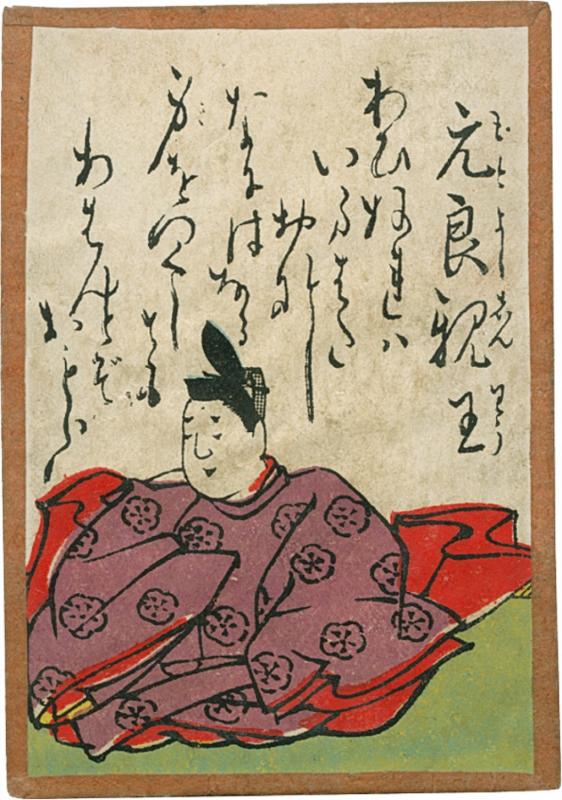 元良親王
もとよししんわう
わひぬれハ
いまはた
おなし
なにはなる
身をつくし
ても
あはんとぞ
おもふ